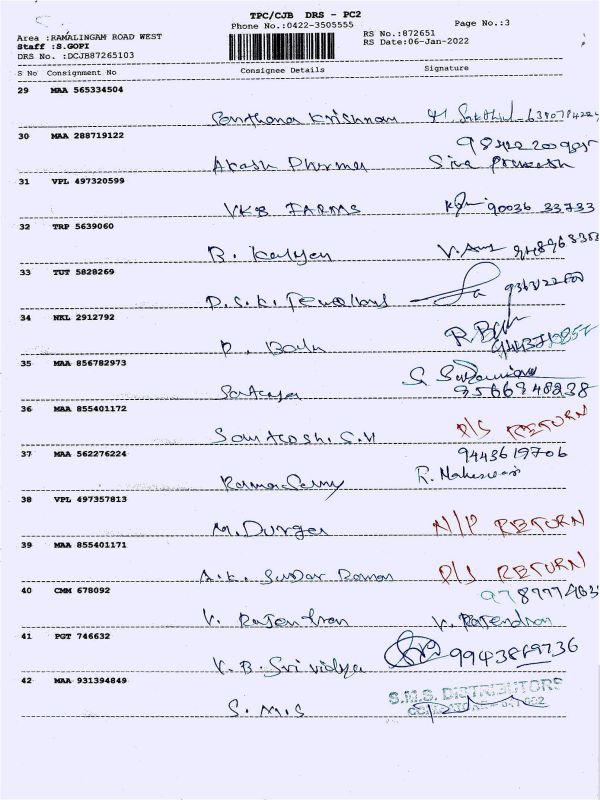 TPC/CJB DRS - PC2
Phone No.:0422-3505555 Page No.:3
Area :RAMALINGAM ROAD WEST RS No.:872651
Staff :S.GOPI RS Date:06-Jan-2022
DRS No. :DCJB87265103
S No Consignment No Consignee Details Signature
29 MAA 565334504
Santhana Krishnan
30 MAA 288719122
Akash Pharma Siva Prakash
31 VPL 497320599
VKB FARMS 90036 33733
32 TRP 5639060
R. Kalyan
33 TUT 5828269
34 NKL 2912792
P. Babu
35 MAA 856782973
9566948238
36 MAA 855401172
Santhosh. S.V P/S RETURN
37 MAA 562276224 9443619706
Ramasamy R. Maheswari
38 VPL 497357813
M. Durga N/P RETURN
39 MAA 855401171
A.K. Sundar Raman P/S RETURN
40 CMM 678092
V. Rajendran V. Rajendran
41 PGT 746632
V. B. Srividya
42 MAA 931394849
S. M. S S.M.S. DISTRIBUTORS